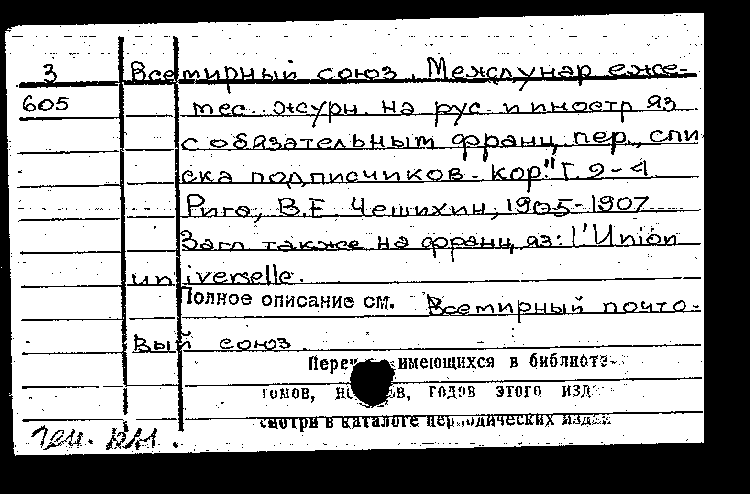 3 Всемирный союз. Междунар еже-
605 мес. журн. на рус и иностр яз
с обязательным франц. пер., спи
ска подписчиков - кор." Г. 2-4
Рига, В.Е. Чешихин, 1905-1907
Загл также на франц. яз: l'Union
universelle.
Полное описание см. Всемирный почто-
вый союз.
имеющихся в библиоте-
томов, годов этого изд
смотри в каталоге периодических издан